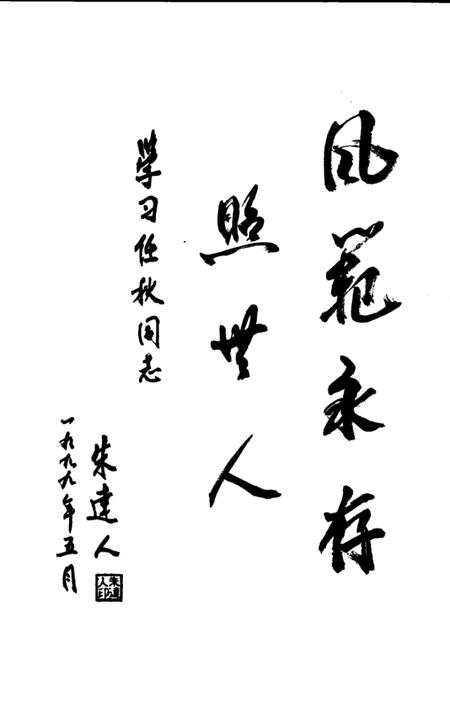 风范永存
照世人
学习任秋同志
朱达人
一九九九年五月
朱达人印